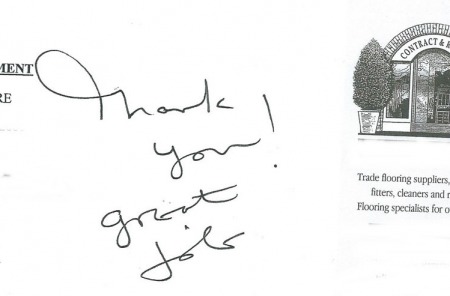 MENT
RE
Thank
you!
great
job
CONTRACT & R
Trade flooring suppliers,
fitters, cleaners and r
Flooring specialists for o